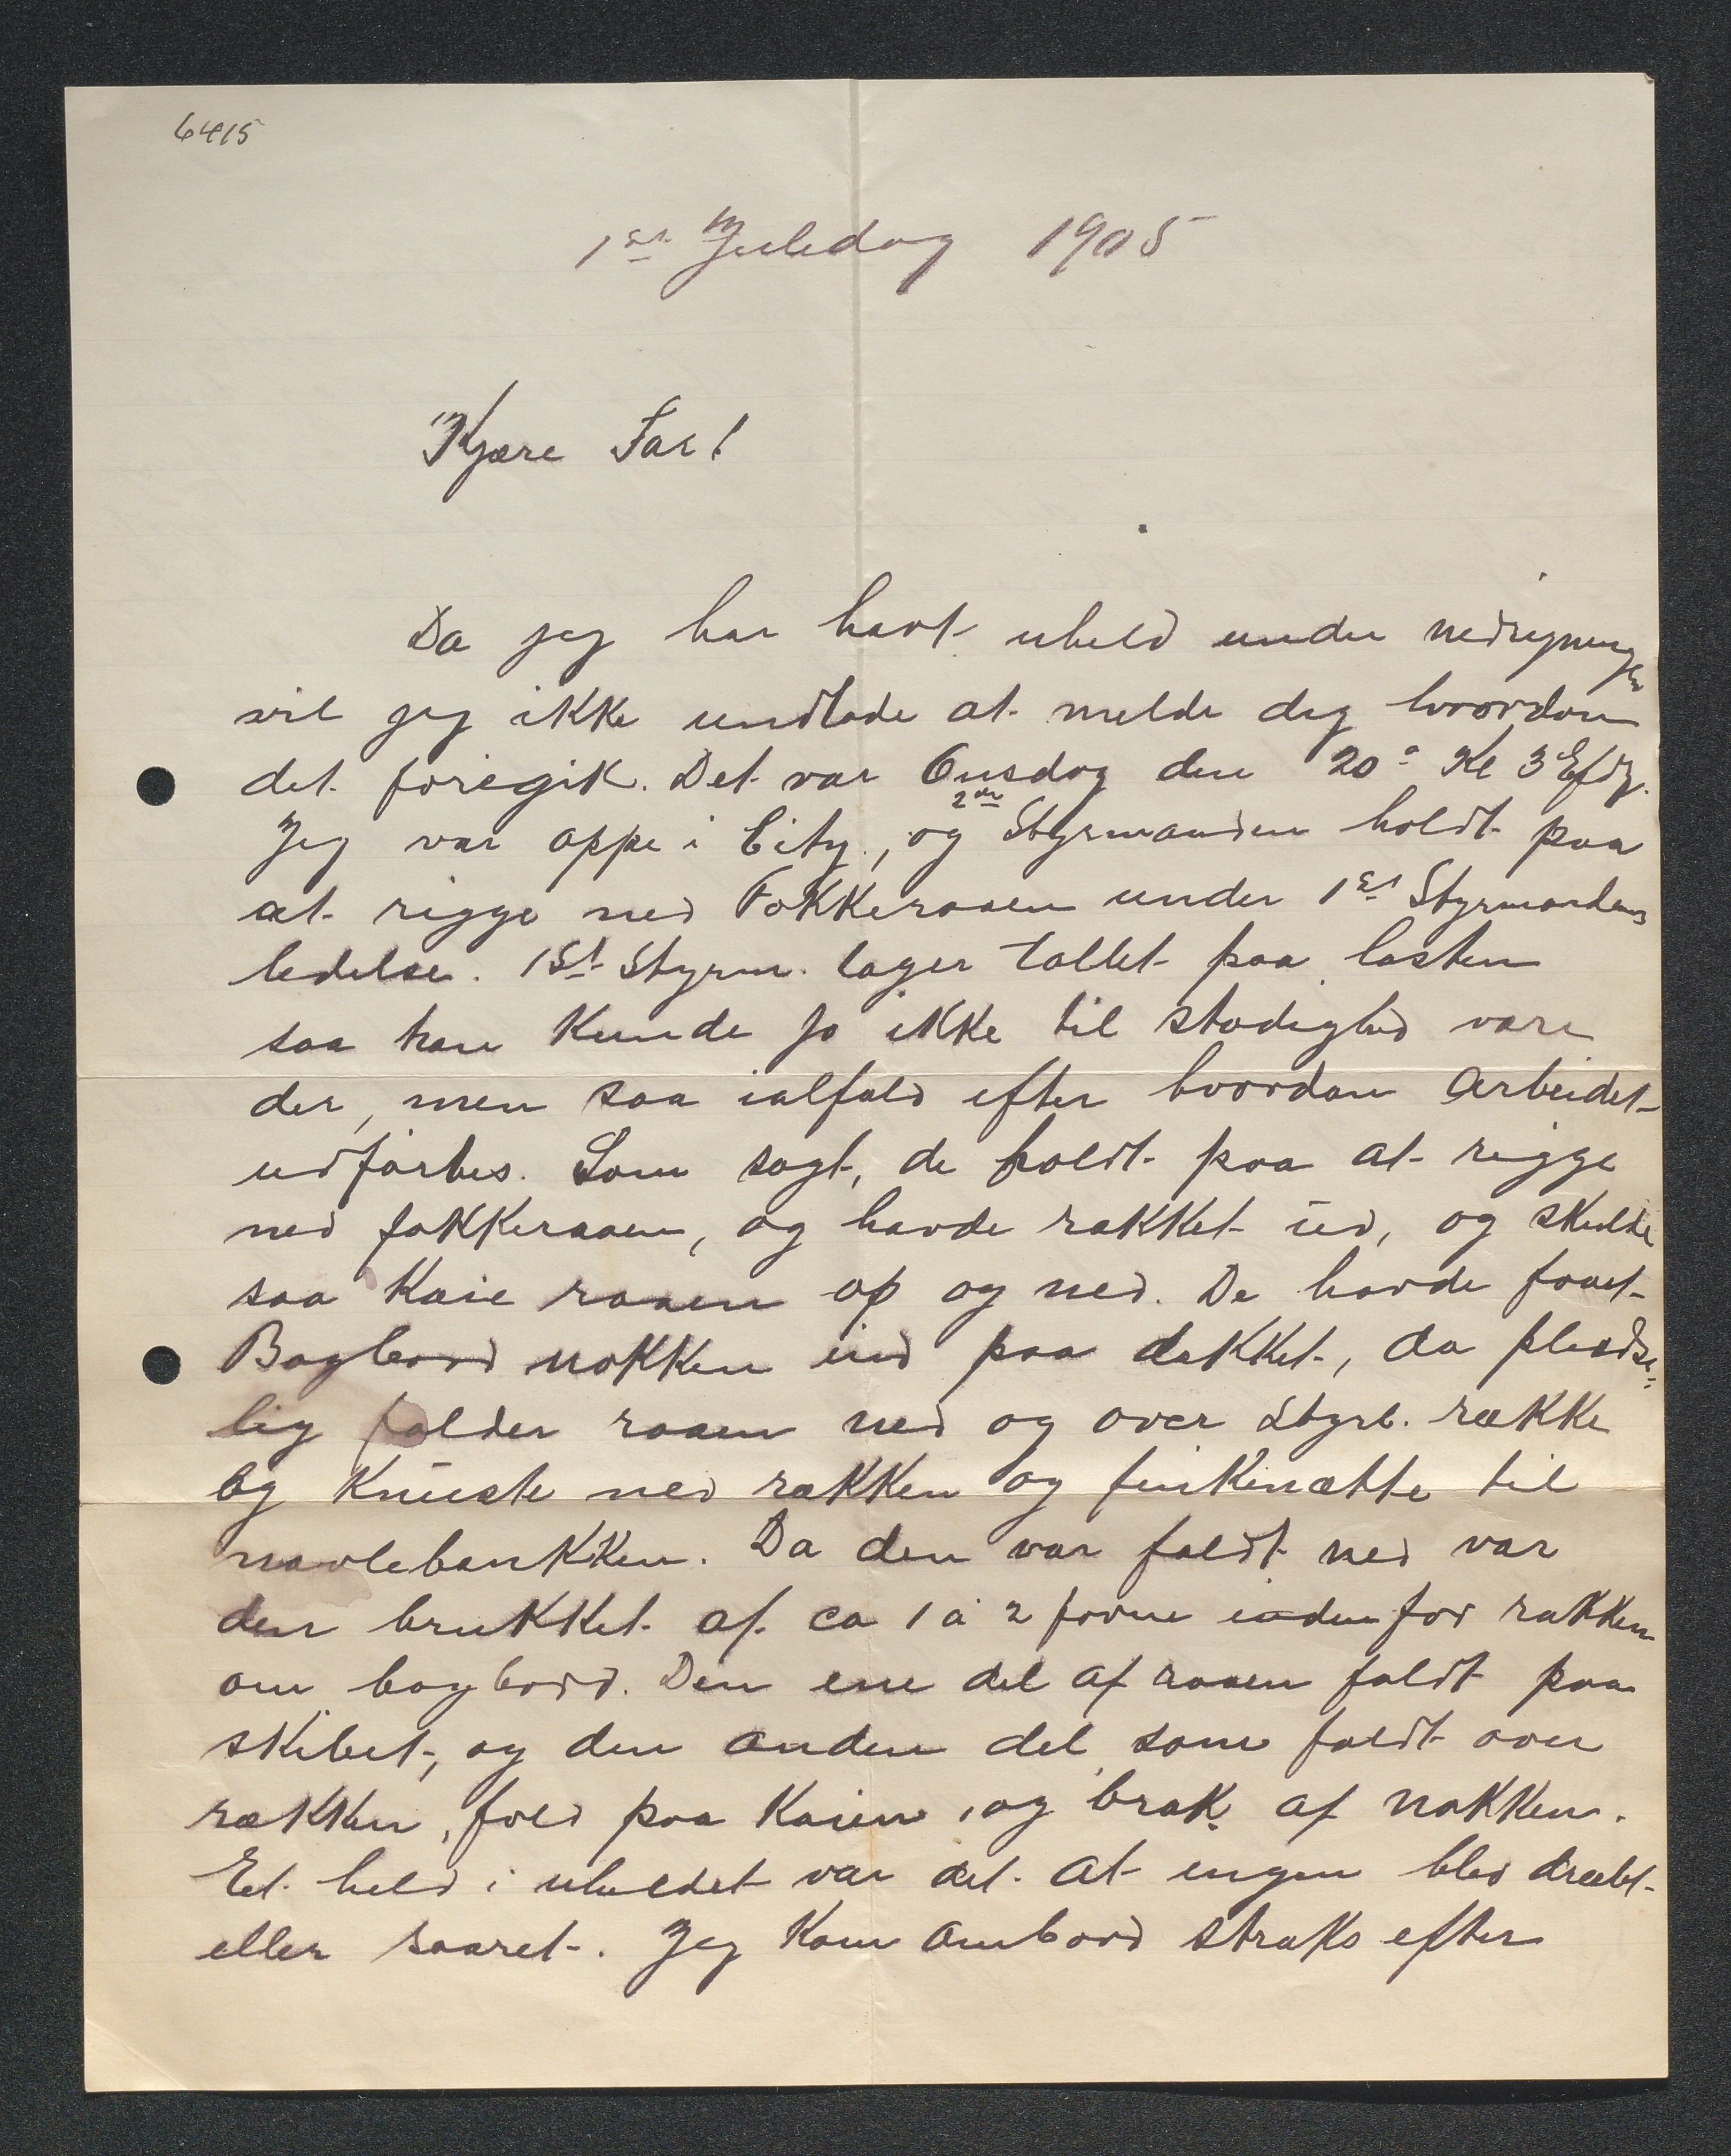 6415
1st Juledag 1905
Kjære Far!
Da jeg har havt uheld under nedrigningen
vil jeg ikke undlade at melde dig hvordan
det foregik. Det var Onsdag den 20de Kl 3 Efdg.
Jeg var oppe i City, og 2den Styrmanden holdt paa
at rigge ned Fokkeraaen under 1st Styrmandens
ledelse. 1st Styrm. tager tallet paa lasten
saa han kunde jo ikke til stadighed være
der, men saa ialfald efter hvordan arbeidet
udførtes. Som sagt, de holdt paa at rigge
ned fokkeraaen, og havde rakket ud, og skulde
saa kaie raaen op og ned. De havde faaet
Bagbord nokken ind paa dækket, da pludse-
lig falder raaen ned og over Styrb. række
og knuste ned rækken og finkenætte til
naglebankken. Da den var faldt ned var
den brukket af ca 1 à 2 favne indenfor rækken
om bagbord. Den ene del af raaen faldt paa
skibet, og den anden del som faldt over
rækken, fald paa Kaien, og brak af nokken.
Et held i uheldet var det at ingen blev dræbt
eller saaret. Jeg kom ombord straks efter